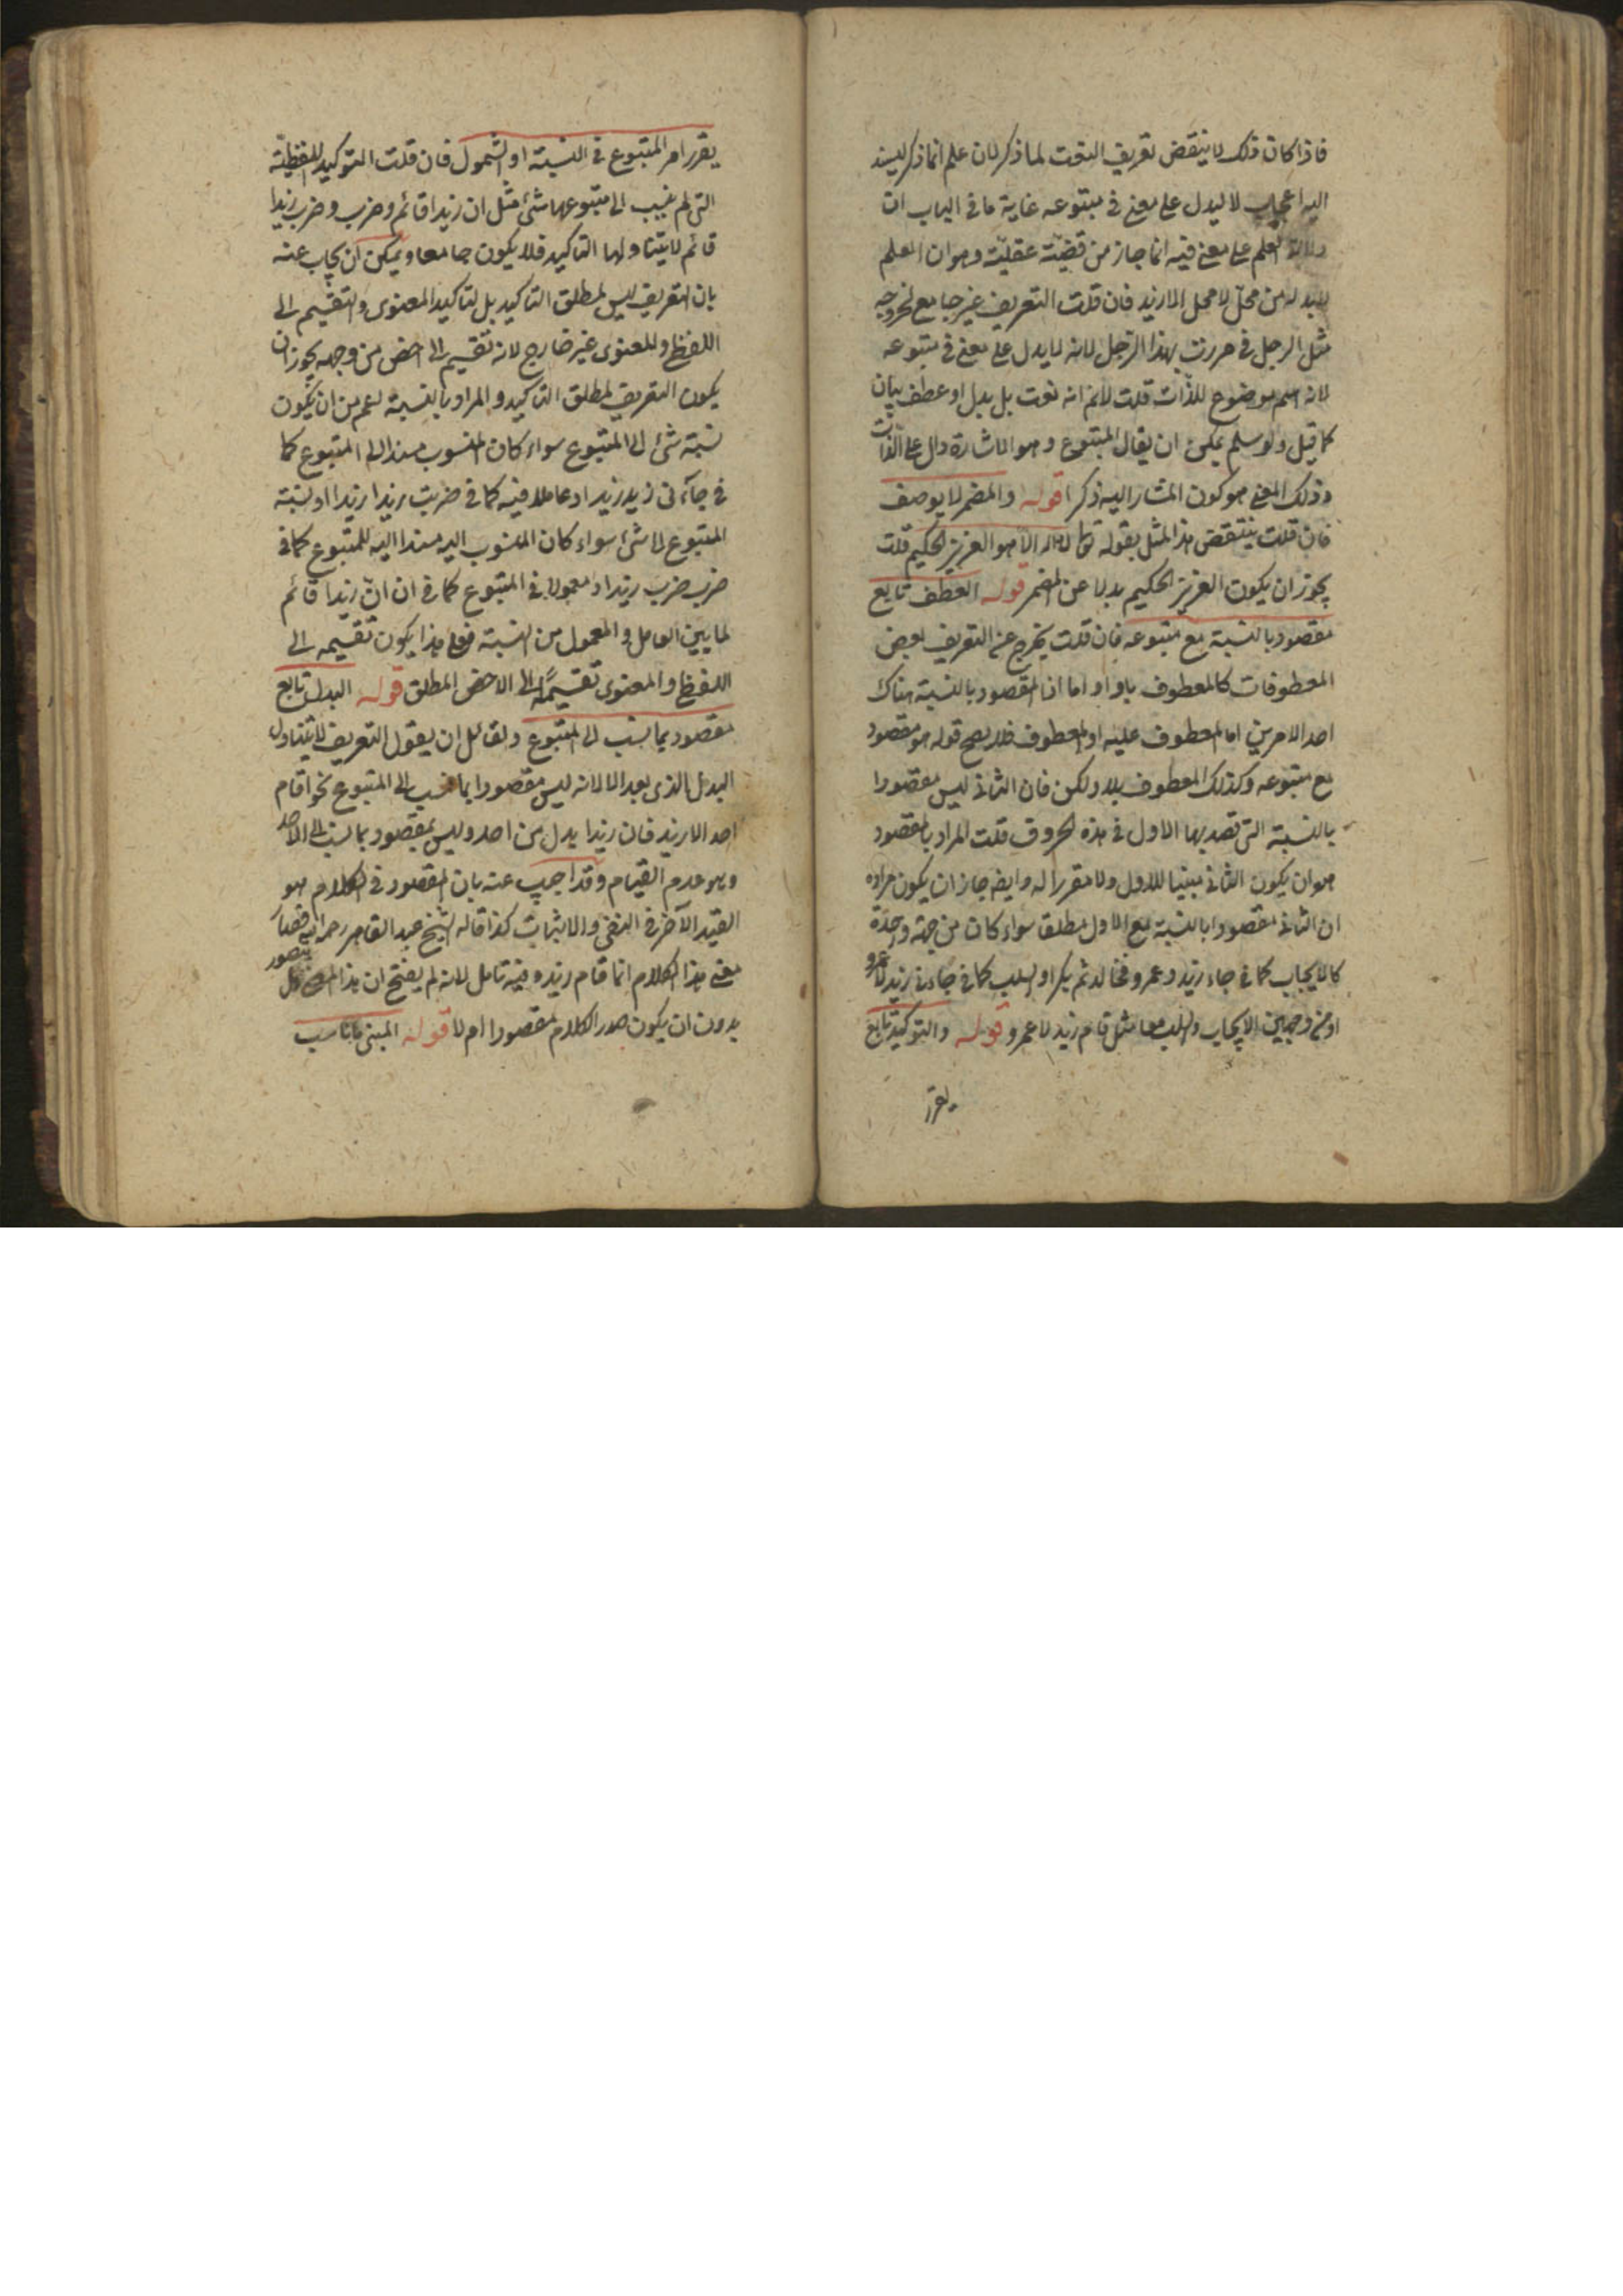 فاذا كان ذلك لا ينتقض تعريف النعت لما ذكر لان علم انما ذكر ليسند
اليه اعجاب لا ليدل على معنى في متبوعه غاية ما في الباب ان
دلالة العلم على معنى فيه انما جاز من قضية عقلية وهو ان العلم
لابد له من محل لا محل الا زيد فان قلت التعريف غير جامع لخروجه
مثل الرجل في مررت بهذا الرجل لانه لا يدل على معنى في متبوعه
لانه اسم موضوع للذات قلت لانم انه نعت بل بدل او عطف بيان
كما قيل ولو سلم يمكن ان يقال المتبوع وهو الاشارة دال على الذات
وذلك المعنى هو كون المشار اليه ذكرا قوله والمضمر لا يوصف
فان قلت ينتقض هذا المثل بقوله تعالى لا اله الا هو العزيز الحكيم قلت
يجوز ان يكون العزيز الحكيم بدلا عن المضمر قوله العطف تابع
مقصود بالنسبة مع متبوعه فان قلت يخرج عن التعريف بعض
المعطوفات كالمعطوف باو او اما اذ المقصود بالنسبة هناك
احد الامرين اما المعطوف عليه او المعطوف فلا يصح قوله هو مقصود
مع متبوعه وكذلك المعطوف بلا ولكن فان الثاني ليس مقصودا
بالنسبة التي قصد بها الاول في هذه الحروف قلت المراد بالمقصود
هو ان يكون الثاني مبينا للاول ولا مقررا له وايضا جاز ان يكون مراده
ان الثاني مقصود بالنسبة مع الاول مطلقا سواء كان من جهة واحدة
كالايجاب كما في جاء زيد وعمرو فخالد ثم بكر او السلب كما في جاءني زيد لا عمرو
او من وجهين الايجاب والسلب معا مثل قام زيد لا عمرو قوله والتوكيد تابع
يقرر
يقرر امر المتبوع في النسبة او الشمول فان قلت التوكيد اللفظية
التي لم ينسب الى متبوعها شئ مثل ان زيدا قائم وضرب وضرب زيدا
قائم لا يتناولها التاكيد فلا يكون جامعا ويمكن ان يجاب عنه
بان التعريف ليس لمطلق التاكيد بل لتاكيد المعنوى والتقسيم الى
اللفظي والمعنوى غير خارج لانه تقسيم الى اخص من وجه يجوز ان
يكون التعريف لمطلق التاكيد والمراد بالنسبة اعم من ان يكون
نسبة شئ الى المتبوع سواء كان المنسوب مسندا الى المتبوع كما
في جاءني زيد زيد او عاملا فيه كما في ضربت زيدا زيدا او نسبة
المتبوع الى شئ سواء كان المنسوب اليه مسندا اليه للمتبوع كما في
ضرب ضرب زيد او معمولا في المتبوع كما في ان ان زيدا قائم
لما بين العامل والمعمول من النسبة فعلى هذا يكون تقسيمه الى
اللفظي والمعنوى تقسيما الى الاخص المطلق قوله البدل تابع
مقصود بما نسب الى المتبوع ولقائل ان يقول التعريف لا يتناول
البدل الذى بعد الا لانه ليس مقصودا بما نسب الى المتبوع نحو ما قام
احد الا زيد فان زيدا بدل من احد وليس بمقصود بما نسب الى الاحد
وهو عدم القيام وقد اجيب عنه بان المقصود في الكلام هو
القيد الآخر في النفي والاثبات كذا قاله الشيخ عبد القاهر رحمه الله فصار
معنى هذا الكلام انما قام زيد وفيه تامل لانه لم يفتح ان هذا هل
يتصور
بدون ان يكون صدر الكلام مقصودا ام لا قوله المبنى ما ناسب